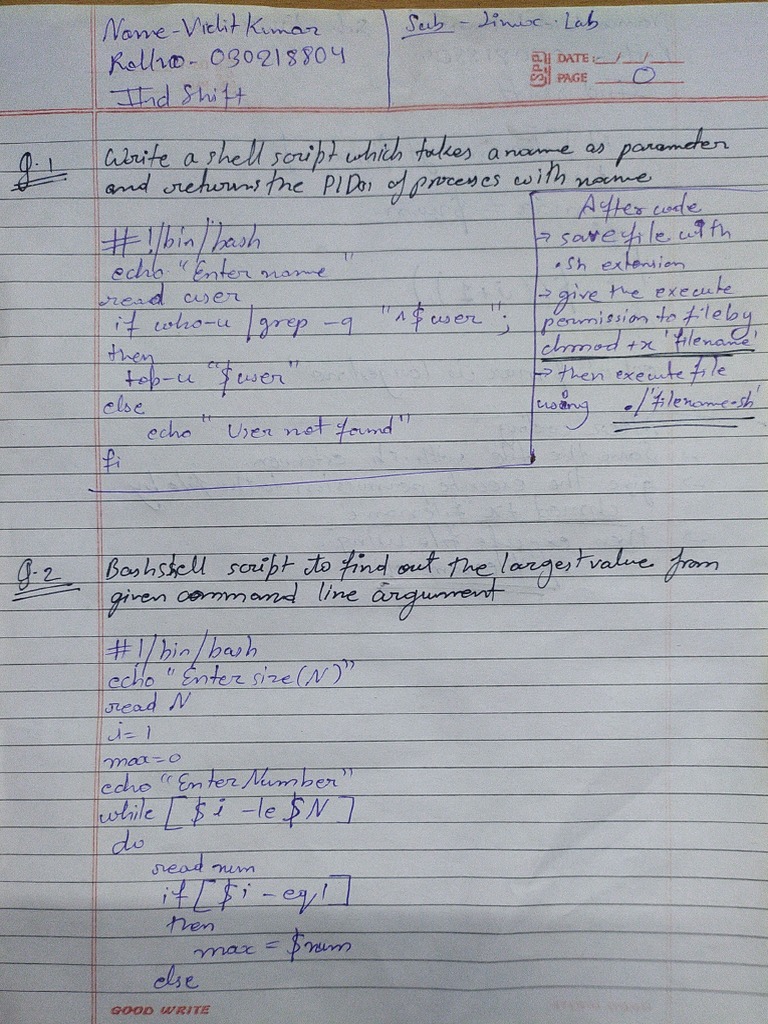 Name - Vidit Kumar
Roll no - 030218804
IInd Shift
Sub - Linux Lab
SPP DATE: / /
PAGE 0
Q.1 Write a shell script which takes a name as parameter
and returns the PIDs of processes with name
#!/bin/bash
echo "Enter name"
read user
if who -u | grep -q "^$user";
then
top -u "$user"
else
echo "User not found"
fi
After code
→ save file with
.sh extension
→ give the execute
permission to file by
chmod +x 'filename'
→ then execute file
using ./'filename.sh'
Q.2 Bash shell script to find out the largest value from
given command line argument
#!/bin/bash
echo "Enter size(N)"
read N
i=1
max=0
echo "Enter Number"
while [ $i -le $N ]
do
read num
if [ $i -eq 1 ]
then
max = $num
else
GOOD WRITE